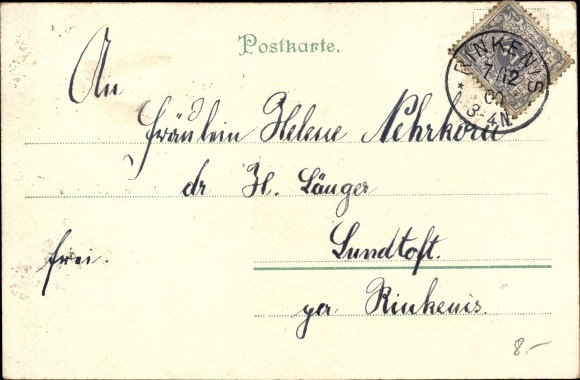 Postkarte.
RINKENIS
7/12
3-4N.
An
Fräulein Helene Nehrkorn
dr H. Länger
frei.
Lundtoft.
per Rinkenis.
8.-